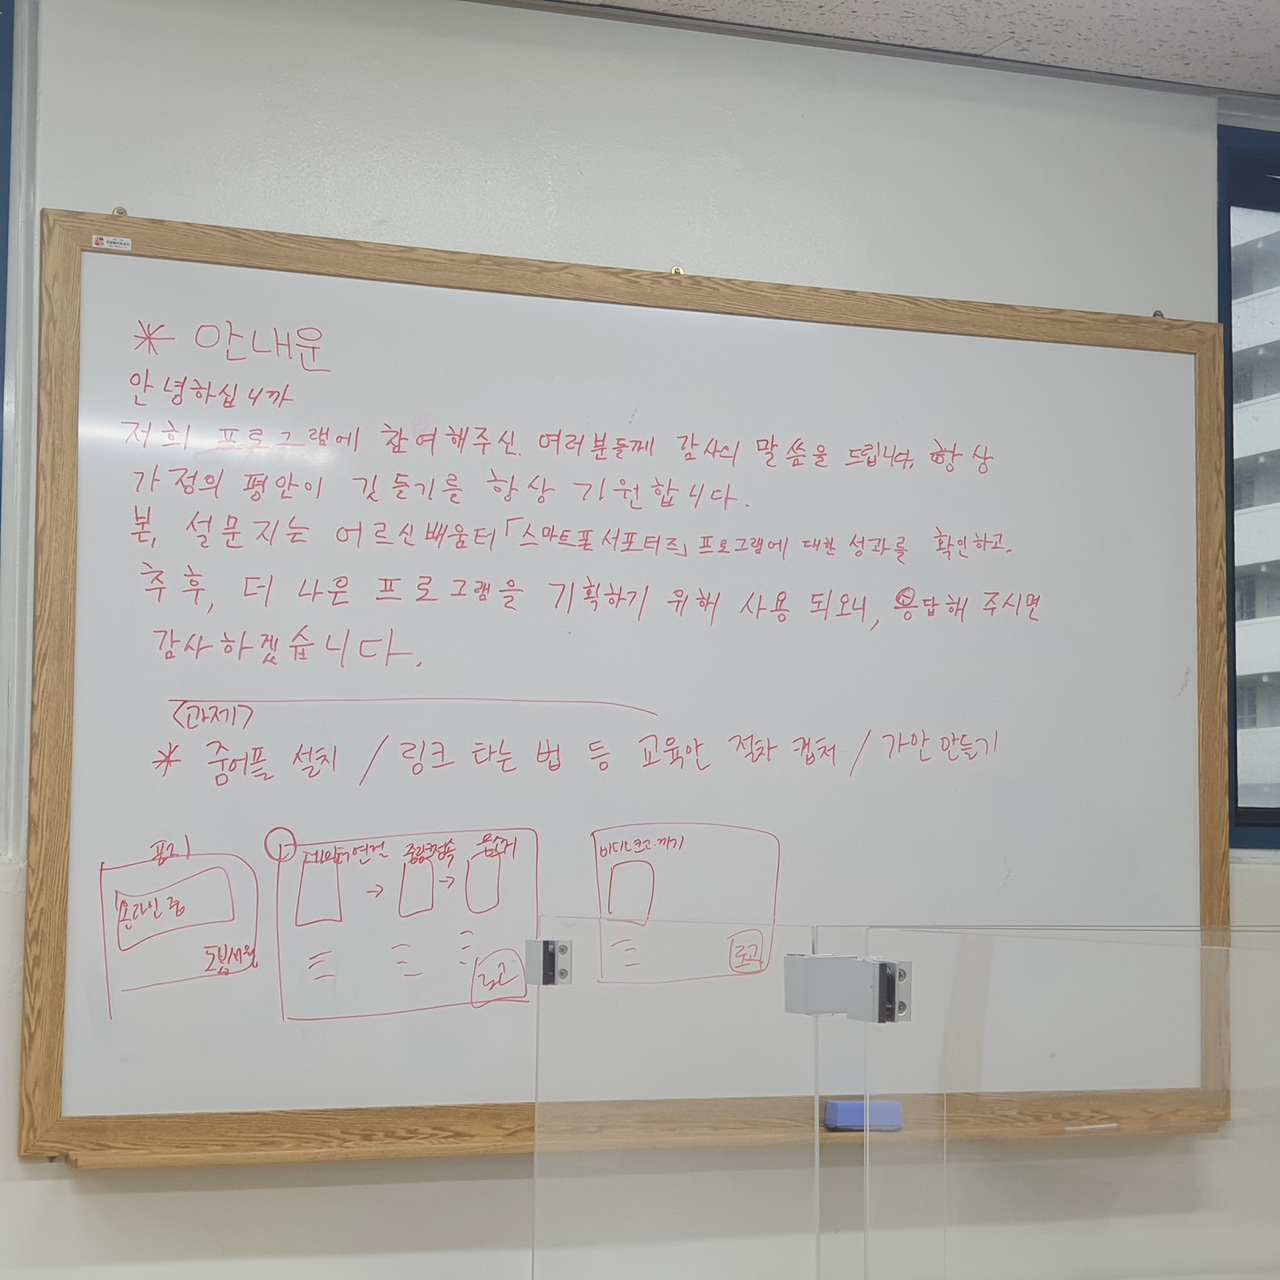 * 안내문
안녕하십니까
저희 프로그램에 참여해주신. 여러분들께 감사의 말씀을 드립니다, 항상
가정의 평안이 깃들기를 항상 기원합니다.
본, 설문지는 어르신배움터「스마트폰서포터즈」프로그램에 대한 성과를 확인하고.
추후, 더 나은 프로그램을 기획하기 위해 사용 되오니, 응답해 주시면
감사하겠습니다.
<과제>
* 줌어플 설치 / 링크 타는 법 등 교육안 절차 캡처 / 가안 만들기
표지
온라인 줌
1 데이터연결 → 줌링크접속 →
비디오 켜고.끄기
로고
로고